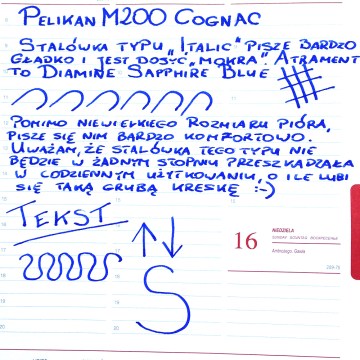 PELIKAN M200 COGNAC
STALÓWKA TYPU „ITALIC" PISZE BARDZO
GŁADKO I JEST DOSYĆ „MOKRA". ATRAMENT
TO DIAMINE SAPPHIRE BLUE
POMIMO NIEWIELKIEGO ROZMIARU PIÓRA,
PISZE SIĘ NIM BARDZO KOMFORTOWO.
UWAŻAM, ŻE STALÓWKA TEGO TYPU NIE
BĘDZIE W ŻADNYM STOPNIU PRZESZKADZAŁA
W CODZIENNYM UŻYTKOWANIU, O ILE LUBI
SIĘ TAKĄ GRUBĄ KRESKĘ :-)
TEKST
S
16 NIEDZIELA